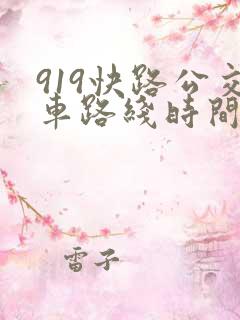 919快路公交
車路綫時間
雷子